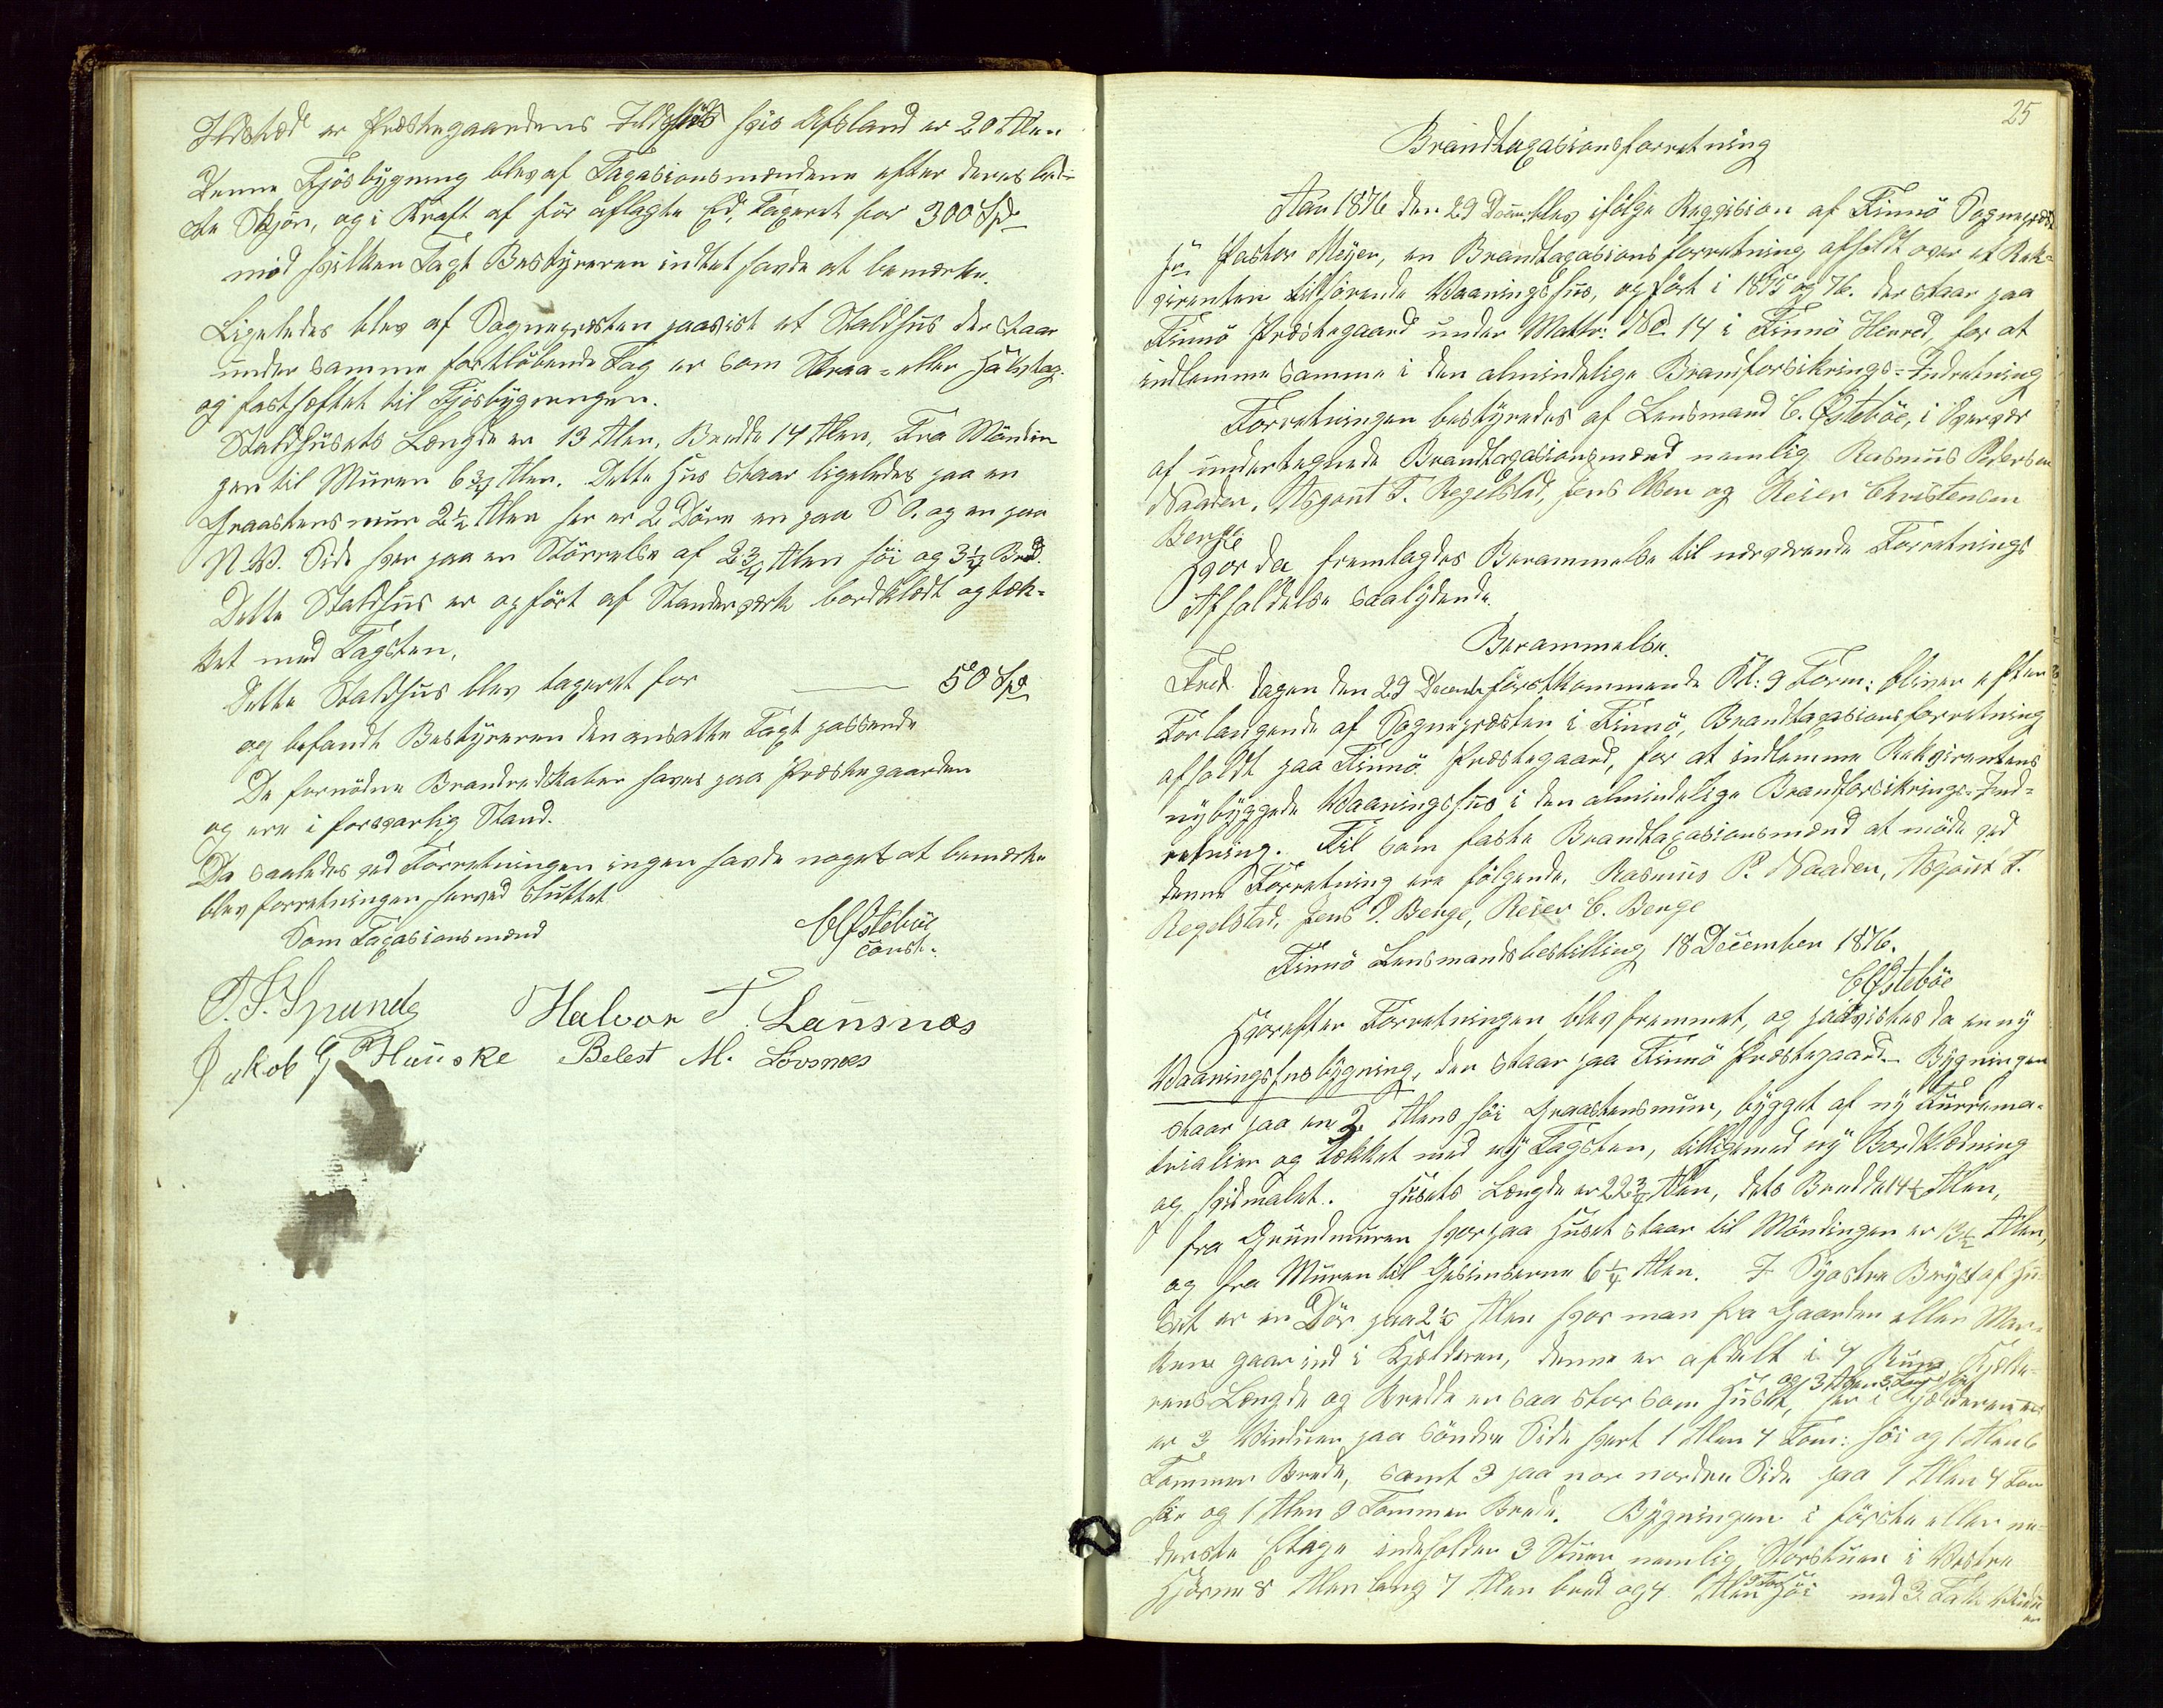 Ildsted er Præstegaardens Ildhus hvis Afstand er 20 Alen
Denne Fjösbygning blev af Taxasionsmændene efter deres bed-
ste Skjön, og i Kraft af för aflagte Ed, Taxeret for 300 Spd
mod hvilken Taxt Bestyreren indtet havde at bemærke.
Ligeledes blev af Sognepræsten paavist et Staldhus der staar
under samme fortlöbende Tag er som Skraa- eller Halvtag
og fasthæftet til Fjösbygningen.
Staldhusets Længde er 13 Alen, Bredde 14 Alen, Fra Mönin
gen til Muren 6 3/4 Alen. Dette Hus staar ligeledes paa en
Graastensmur 2 1/2 Alen her er 2 Döre en paa S O. og en paa
N.V. Side hver paa en Störrelse af 2 3/4 Alen höi og 3 1/4 Bred.
Dette Staldhus er opfört af Standerværk bordklædt og tæk-
ket med Tagsten,
Dette Staldhus blev taxeret for 50 Spd
og befandt Bestyreren den ansatte Taxt passende
De fornödne Brandredskaber haves paa Præstegaarden
og ere i forsvarlig Stand.
Da saaledes ved Forretningen ingen havde noget at bemærke
blev forretningen herved sluttet
Som Taxasionsmænd C Østeböe
const.
Halvor T. Lansnæs
Jakob G Hauske Belest M. Lovsnæs
25
Brandtaxasionsforretning
Aar 1876 den 29 Decmr blev ifölge Reqvision af Finnö Sognepræst
Hr Pastor Meyer, en Brandtaxasionsforretning afholdt over et Rek-
virenten tilhörende Vaaningshus, opfört i 1875 og 76. der staar paa
Finnö Præstegaard under Matr: No 14 i Finnö Herred, for at
indlemme samme i den almindelige Brandforsikrings-Indretning
Forretningen bestyredes af Lensmand C. Østeböe, i Overvær
af undertegnede Brandtaxasionsmænd nemlig Rasmus Pedersen
Naaden, Asgaut T. Regelstad, Jens Olsen og Reier Christensen
Berge
Hvor da fremlagdes Berammelse til nærværende Forretnings
Afholdelse saalydende.
Berammelse.
Fredagen den 29 December förstkommende Kl: 9 Form: bliver efter
Forlangende af Sognepræsten i Finnö, Brandtaxasionsforretning
afholdt paa Finnö Præstegaard, for at indlemme Rekvirentens
nybyggede Vaaningshus i den almindelige Brandforsikrings-Ind-
retning. Til som faste Brandtaxasionsmænd at möde ved
denne Forretning ere fölgende, Rasmus P. Naaden, Asgaut T.
Regelstad, Jens O. Berge, Reier C. Berge
Finnö Lensmandsbestilling 18 December 1876.
C Østeböe
Hvorefter Forretningen blev fremmet, og paavistes da en ny
Vaaningshusbygning, der staar paa Finnö Præstegaard. Bygningen
staar paa en 2 Alens höi Graastensmur, bygget af ny Furrema-
trialier og tækket med ny Tagsten, tilligemed ny Bordklædning
og hvidmalet. Husets Længde er 22 3/4 Alen, dets Bredde 14 1/4 Alen,
fra Grundmuren hvorpaa Huset staar til Möndingen er 13 1/2 Alen,
og fra Muren til Gesimserne 6 1/4 Alen. I Syöstre Bryst af Hu-
set er en Dör paa 2 1/2 Alen hvor man fra Gaarden eller Mar-
ken gaar ind i Kjælderen, denne er afdelt i 4 Rum, Kjælde-
rens Længde og Bredde er saa stor som Huset, her i Kjælderen
er 3 Vinduer paa söndre Side hvert 1 Alen 4 Tom: höi og 1 Alen 6
Tommer Brede, samt 3 paa nor norden Side paa 1 Alen 4 Tom
höi og 1 Alen 9 Tommer Brede. Bygningen i förste eller ne-
derste Etage indeholder 3 Stuer nemlig, Storstuen i Vestre
Hjörne 8 Alen lang 7 Alen bred og 4 Alen höi med 3 Vindu
er